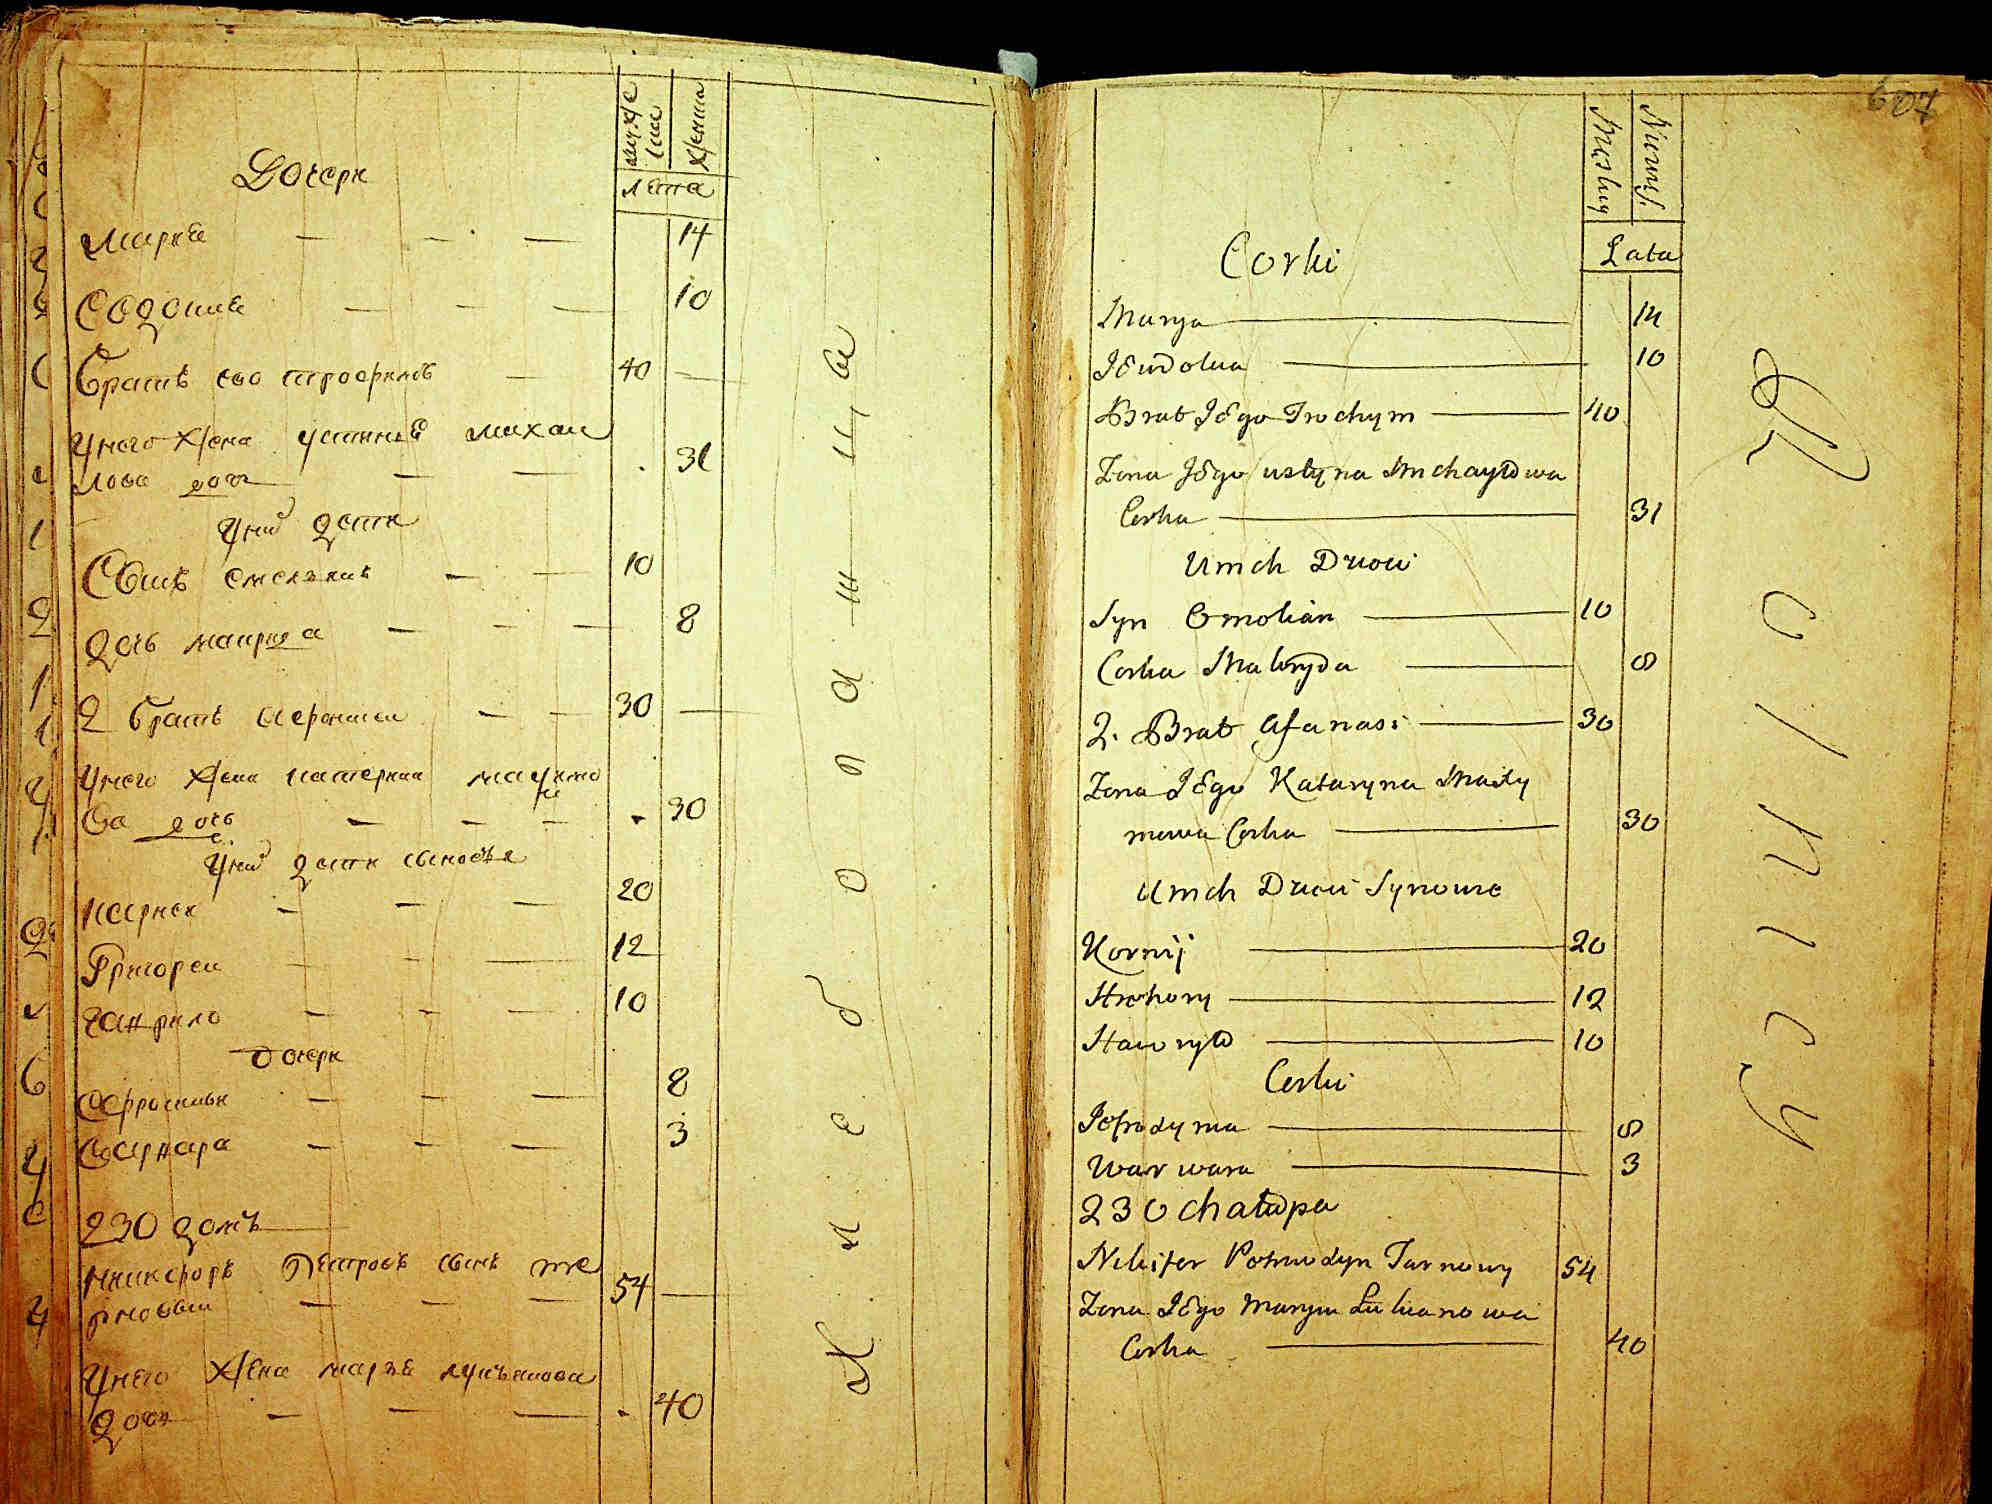 Дочери
мужска
женска
лета
Марiя — — — 14
Евдокиiя — — — 10
Братъ его Трофимъ — 40 —
У него жена Устинiя Михаи
лова дочь — — 31
У них дети
Сынъ Емелянъ — — 10
Дочь Мавруда — — — 8
2 братъ Аөанасеи — — 30 —
У него жена Катерина Мауимо
ва дочь — — — 30
У них дети сыновья
Карнеи — — — 20
Григореи — — — 12
Гаврило — — — 10
дочери
Ефросинья — — — 8
Варвара — — — 3
230 домъ
Никифоръ Петровъ сынъ Те
рновыи — — — 54 —
У него жена Марья Лукьянова
дочь — — — 40
Хлебопашцы
607
Męskiy
Niewiesc.
Lata
Corki
Marya — 14
JEwdokia — 10
Brat JEgo Trochym — 40
Zona JEgo ustyna Michayłowa
Corka — 31
U nich Dzieci
Syn Emelian — 10
Corka Mawryda — 8
2. Brat Afanasi — 30
Zona JEgo Kataryna Maxy
mowa Corka — 30
U nich Dzieci Synowie
Kornij — 20
Hrehory — 12
Hawryło — 10
Corki
JEfrozyma — 8
Warwara — 3
230 chałupa
Nikifer Petrow syn Tarnowy 54
Zona JEgo Marya Lukianowa
Corka — 40
Rolnicy